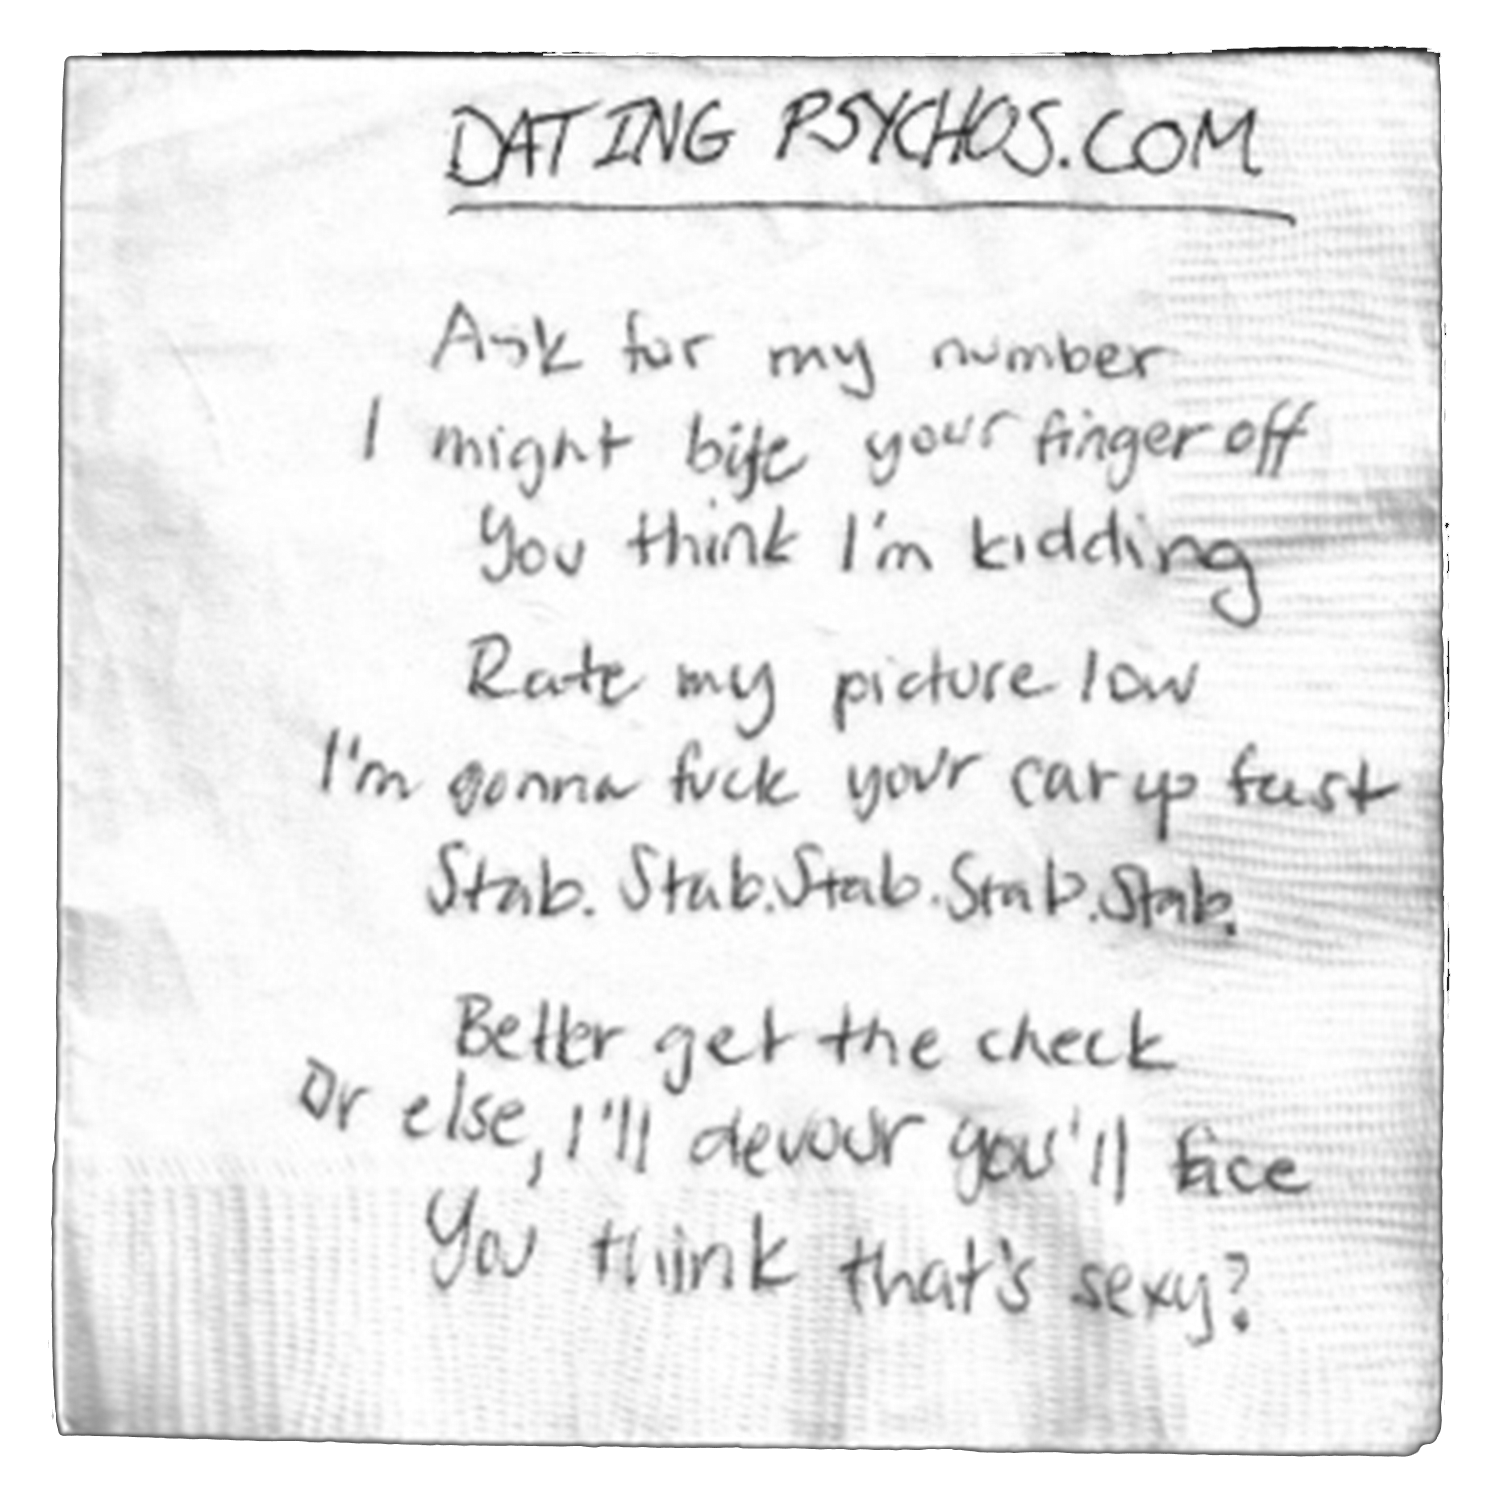 DATING PSYCHOS.COM
Ask for my number
I might bite your finger off
You think I'm kidding
Rate my picture low
I'm gonna fuck your car up fast
Stab. Stab. Stab. Stab. Stab.
Better get the check
Or else, I'll devour you'll face
You think that's sexy?